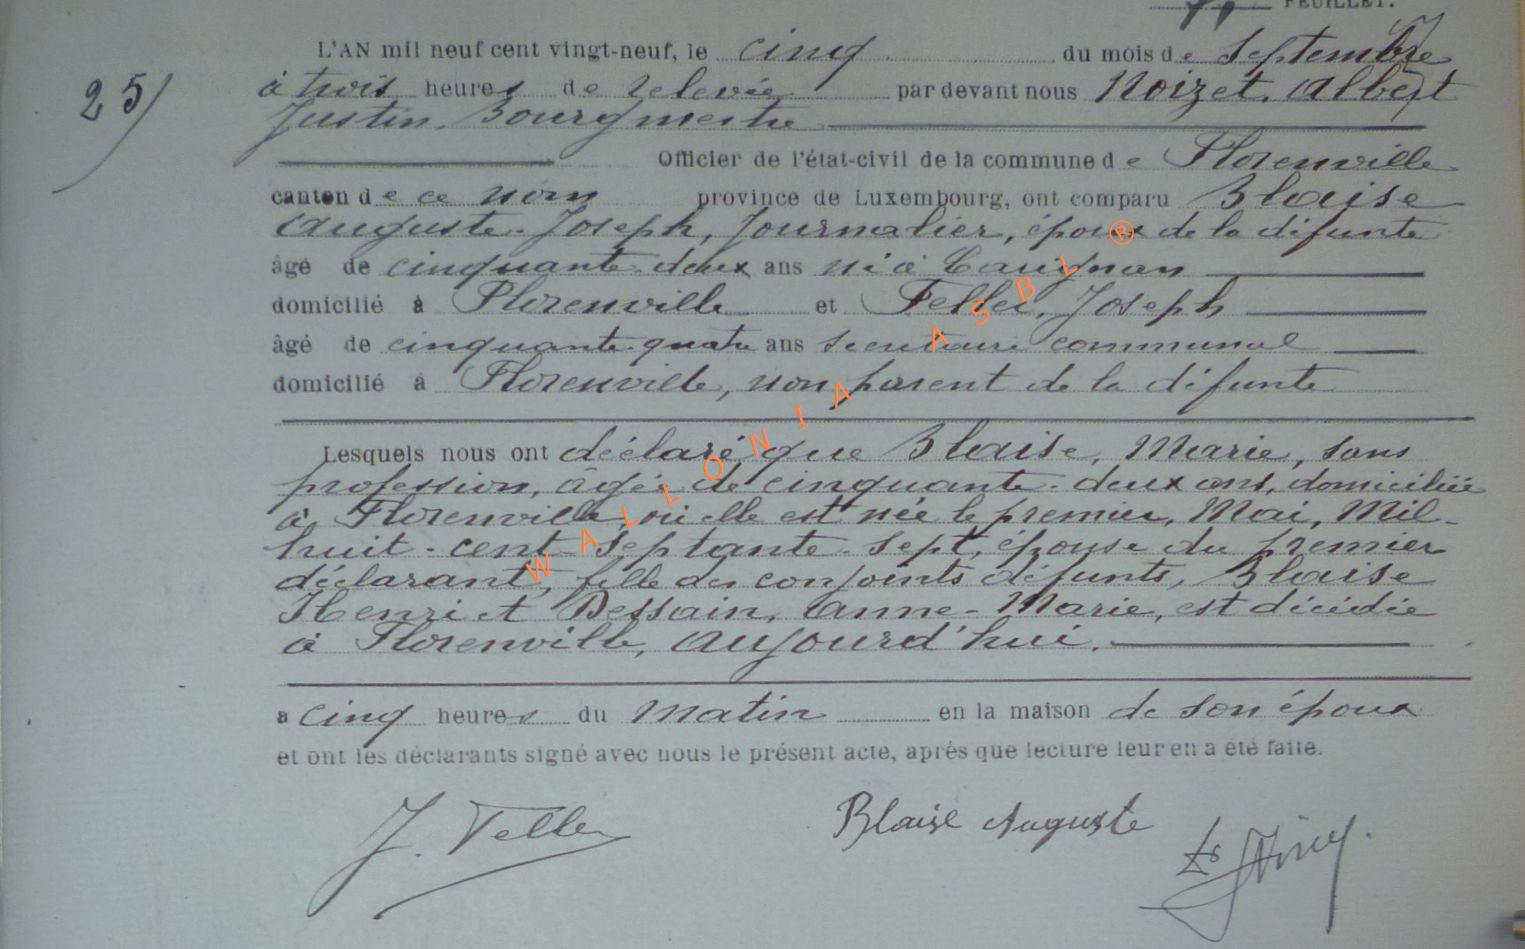 FEUILLET.
25/
L'AN mil neuf cent vingt-neuf, le cinq du mois de Septembre
à trois heures de relevée par devant nous Noizet, Albert
Justin, Bourgmestre
Officier de l'état-civil de la commune de Florenville
canton de ce nom province de Luxembourg, ont comparu Blaise
Auguste-Joseph, Journalier, époux de la défunte
âgé de cinquante-deux ans né à Carignan
domicilié à Florenville et Feller, Joseph
âgé de cinquante-quatre ans secrétaire communal
domicilié à Florenville, non parent de la défunte
Lesquels nous ont déclaré que Blaise, Marie, sans
profession, âgée de cinquante-deux ans, domiciliée
à Florenville, où elle est née le premier, Mai, Mil-
huit-cent-septante-sept, épouse du premier
déclarant, fille des conjoints défunts, Blaise
Henri et Dessain, Anne-Marie, est décédée
à Florenville, aujourd'hui.
a cinq heures du matin en la maison de son époux
et ont les déclarants signé avec nous le présent acte, après que lecture leur en a été faite.
J. Feller Blaise Auguste
WALLONIA ASBL ®